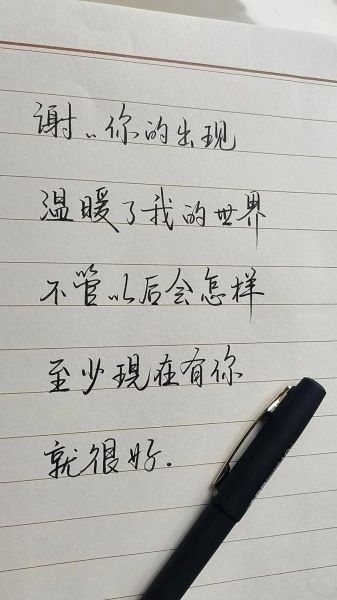 谢〃你的出现
温暖了我的世界
不管以后会怎样
至少现在有你
就很好.